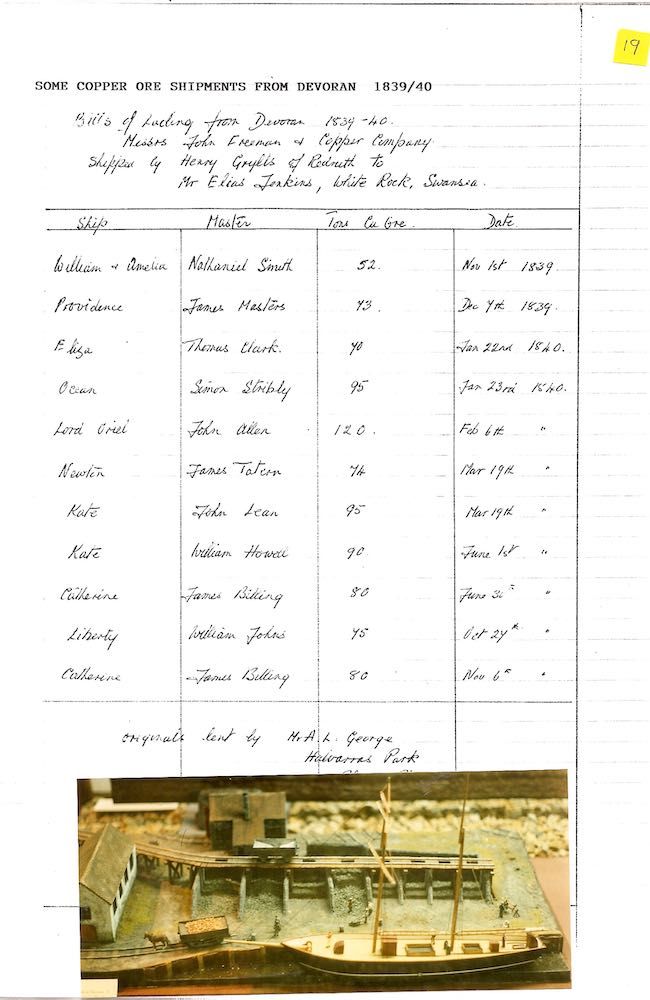 19
SOME COPPER ORE SHIPMENTS FROM DEVORAN 1839/40
Bills of Lading from Devoran 1839-40.
Messrs John Freeman & Copper Company
Shipped by Henry Grylls of Redruth to
Mr Elias Jenkins, White Rock, Swansea.
Ship Master Tons Cu Ore. Date
William & Amelia Nathaniel Smith 52. Nov 1st 1839.
Providence James Masters 73. Dec 7th 1839.
Eliza Thomas Clark. 70 Jan 22nd 1840.
Ocean Simon Stribly 95 Jan 23rd 1840.
Lord Oriel John Allen 120. Feb 6th "
Newton James Tatem 74 Mar 19th "
Kate John Lean 95 Mar 19th "
Kate William Howell 90 June 1st "
Catherine James Billing 80 June 30th "
Liberty William Johns 75 Oct 27th "
Catherine James Billing 80 Nov 6th "
originals lent by Mr A.L. George
Halvarras Park